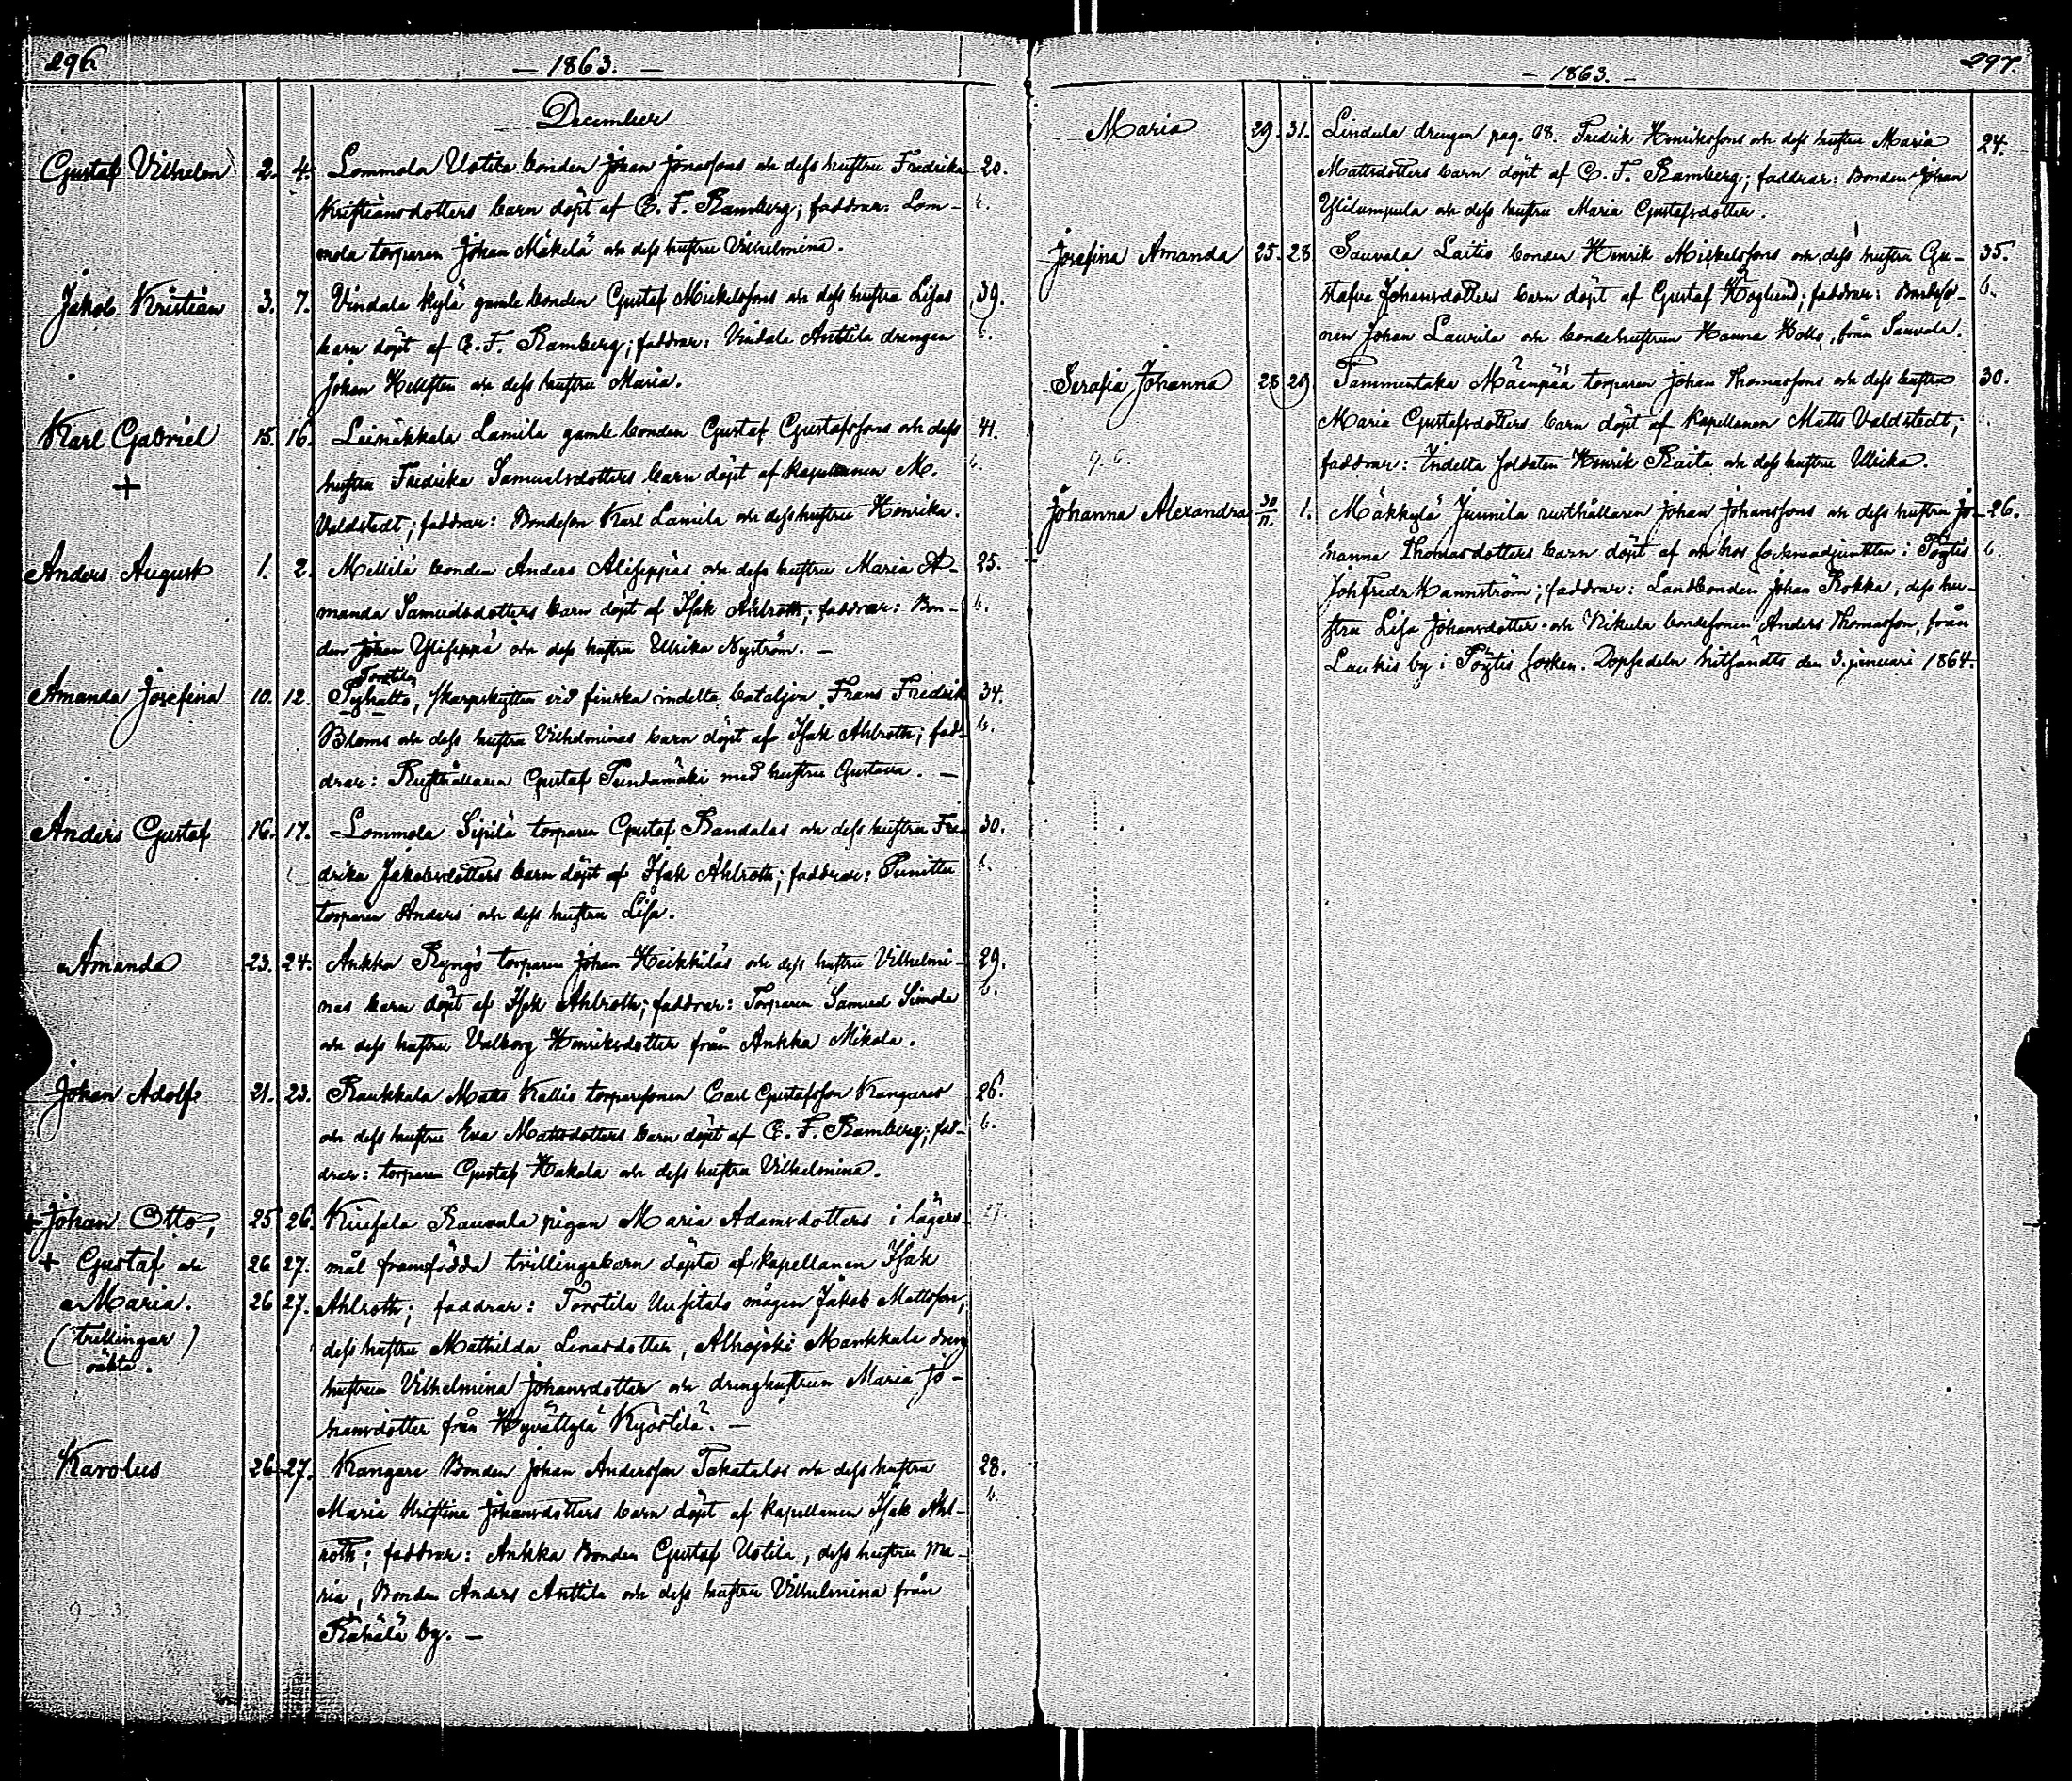 296.
— 1863. —
December
Gustaf Vilhelm 2. 4. Lommola Uotila bonden Johan Jonassons och dess hustru Fredrika 20.
Kristiansdotters barn döpt af C. F. Ramberg; faddrar: Lom- b.
mola torparen Johan Mäkelä och dess hustru Vilhelmina.
Jakob Kristian 3. 7. Vindala Kylä gamle bonden Gustaf Mickelssons och dess hustru Lisas 39.
barn döpt af C. F. Ramberg; faddrar: Vindala Anttila drengen b.
Johan Hellsten och dess hustru Maria.
Karl Gabriel 15. 16. Leinäkkala Lamila gamle bonden Gustaf Gustafssons och dess 41.
+ hustru Fredrika Samuelsdotters barn döpt af kapellanen M. b.
Valdstedt; faddrar: Bondeson Karl Lamila och dess hustru Henrika.
Anders August 1. 2. Mellilä bonden Anders Aliseppäs och dess hustru Maria A- 25.
manda Samuelsdotters barn döpt af Isak Ahlroth; faddrar: Bon- b.
den Johan Yliseppä och dess hustru Ulrika Nyström. —
Torstila
Amanda Josefina 10. 12. Pyhatto, skarpskytten vid finska indelta bataljon Frans Fredrik 34.
Bloms och dess hustru Vilhelminas barn döpt af Isak Ahlroth; fad- b.
drar: Rusthållaren Gustaf Pundamäki med hustru Gustava. —
Anders Gustaf 16. 17. Lommola Sipilä torparen Gustaf Randalas och dess hustru Fre- 30.
drika Jakobsdotters barn döpt af Isak Ahlroth; faddrar: Punittu b.
torparen Anders och dess hustru Lisa.
Amanda 23. 24. Ankka Ryngö torparen Johan Heikkiläs och dess hustru Vilhelmi- 29.
nas barn döpt af Isak Ahlroth; faddrar: Torparen Samuel Simola b.
och dess hustru Valborg Henriksdotter från Ankka Mikola.
Johan Adolf 21. 23. Raukkala Matts Kallis torparesonen Carl Gustafsson Kangares 26.
och dess hustru Eva Mattsdotters barn döpt af C. F. Ramberg; fad- b.
drar: torparen Gustaf Hakala och dess hustru Vilhelmina.
+ Johan Otto, 25 26. Kiusala Rauvala pigan Maria Adamsdotters i lägers-
+ Gustaf och 26 27. mål framfödda trillingabarn döpta af kapellanen Isak
Maria. 26 27. Ahlroth; faddrar: Torstila Uusitalo mågen Jakob Mattsson,
(trillingar) dess hustru Mathilda Lenasdotter, Alhojoki Markkula dreng
oäkta. hustrun Vilhelmina Johansdotter och drenghustrun Maria Jo-
hansdotter från Hyvättylä Kyöstilä. —
Karolus 26 27. Kangare Bonden Johan Andersson Takatalos och dess hustru 28.
Maria Kristina Johansdotters barn döpt af kapellanen Isak Ahl- b.
roth; faddrar: Ankka Bonden Gustaf Uotila, dess hustru Ma-
ria, Bonden Anders Anttila och dess hustru Vilhelmina från
Rähälä by. —
297.
— 1863. —
Maria 29. 31. Lindula drengen pag. 98. Fredrik Henrikssons och dess hustru Maria 24.
Mattsdotters barn döpt af C. F. Ramberg; faddrar: Bonden Johan
Ylilumpula och dess hustru Maria Gustafsdotter.
Josefina Amanda 25. 28 Sauvala Laitis bonden Henrik Mickelssons och dess hustru Gu- 35.
stafva Johansdotters barn döpt af Gustaf Höglund; faddrar: Bondeso- b.
nen Johan Laurila och bondehustrun Hanna Hollo, från Sauvala.
Serafia Johanna 28 29 Tammentaka Mäenpää torparen Johan Thomassons och dess hustru 30.
Maria Gustafsdotters barn döpt af kapellanen Matts Valdstedt;
faddrar: Indelta soldaten Henrik Raita och dess hustru Ulrika.
Johanna Alexandra 30/11. 1. Mäkkylä Junnila rusthållaren Johan Johanssons och dess hustru Jo- 26.
hanna Thomasdotters barn döpt af och hos sockneadjunkten i Pöytis b.
Joh Fredr Mannström; faddrar: Landbonden Johan Rokka, dess hu-
stru Lisa Johansdotter och Nikula bondesonen Anders Thomasson, från
Laukis by i Pöytis socken. Dopsedeln hitsändts den 3. januari 1864.